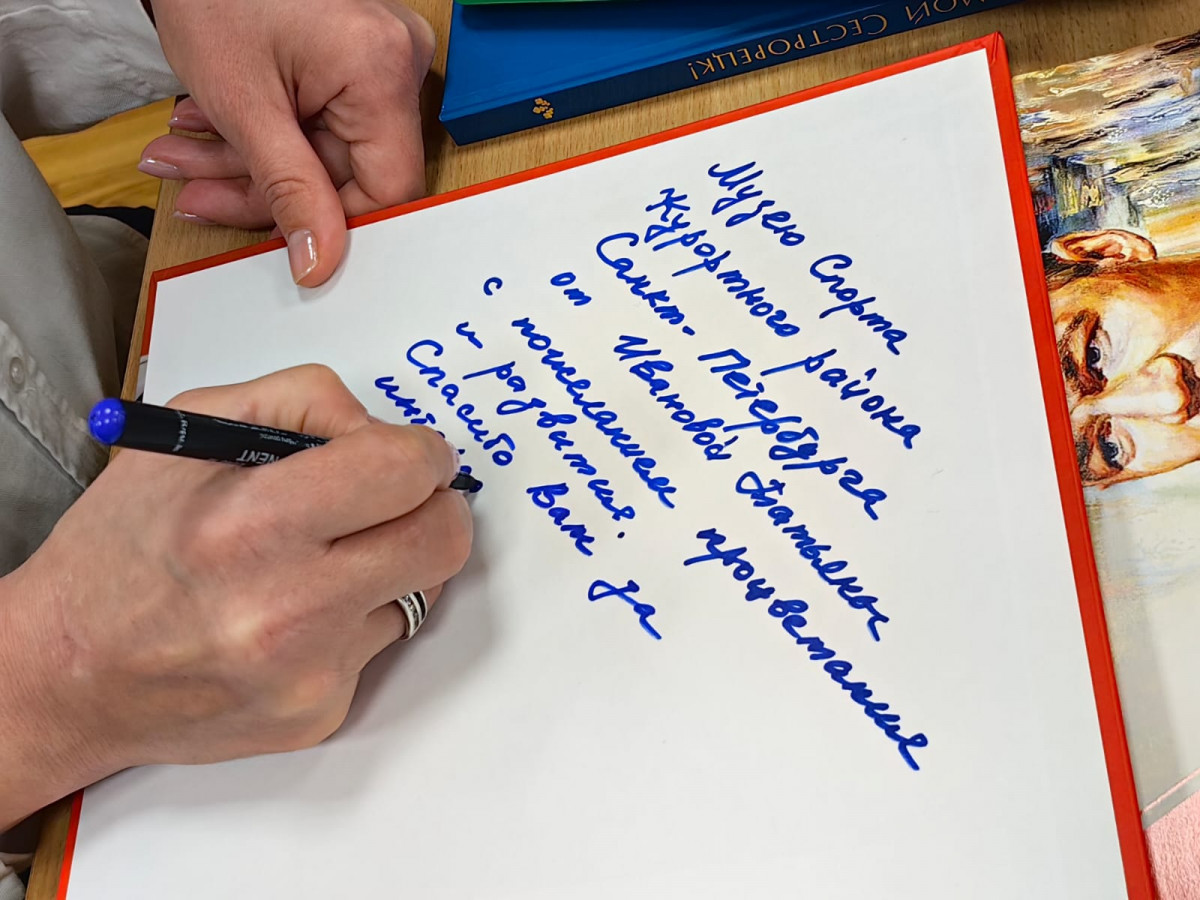 МОЙ СЕСТРОРЕЦК!
NENT
Музею Спорта
Курортного района
Санкт-Петербурга
от Ивановой Татьяны
с пожеланием процветания
и развития.
Спасибо Вам за
инт